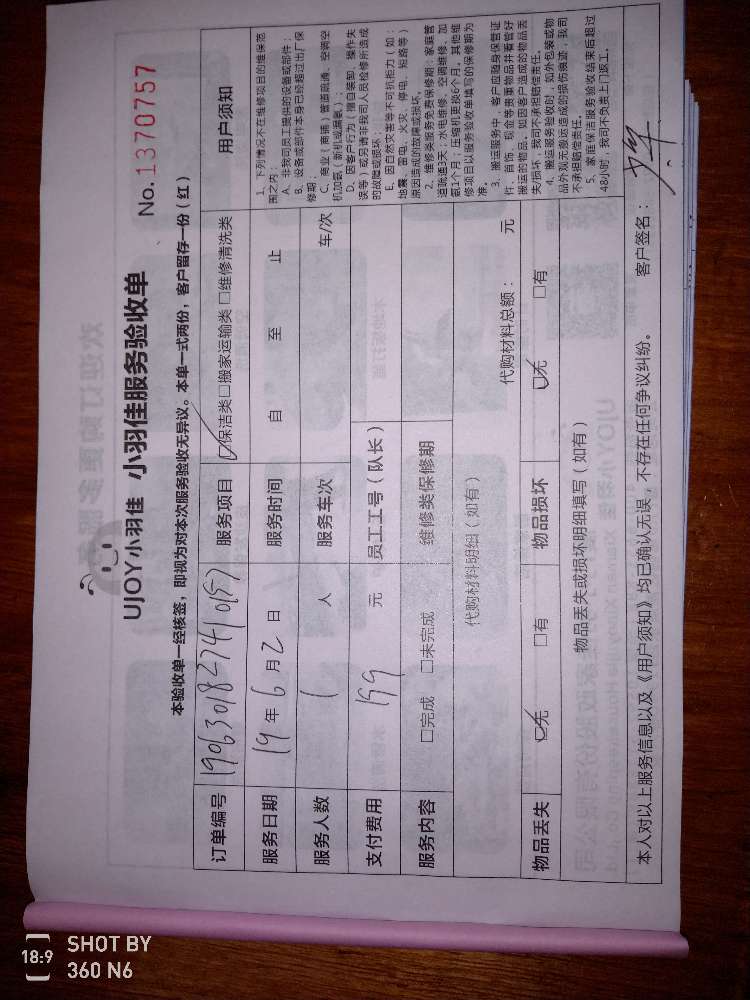 UJOY小羽佳 小羽佳服务验收单
No.1370757
本验收单一经核签，即视为对本次服务验收无异议。本单一式两份，客户留存一份（红）
订单编号 服务项目 ☑保洁类□搬家运输类 □维修清洗类
服务日期 19年6月2日 服务时间 自 至 止
服务人数 1 人 服务车次 车/次
支付费用 199 元 员工工号（队长）
服务内容 □完成 □未完成 维修类保修期
代购材料明细（如有） 代购材料总额： 元
物品丢失 ☑无 □有 物品损坏 ☑无 □有
物品丢失或损坏明细填写（如有）
用户须知
1、下列情况不在维修项目的维保范
围之内：
A、非我司员工提供的设备或部件；
B、设备或部件本身已经超过出厂保
修期；
C、商业（商铺）管道疏通、空调空
机加氨（新机或漏氨）；
D、因客户行为（擅自装卸、操作失
误等）或另请非我司人员检修所造成
的故障或损坏；
E、因自然灾害等不可抗拒力（如：
地震、雷电、火灾、停电、短路等）
原因造成的故障或损坏。
2、维修类服务免费保修期：家庭管
道疏通3天；水电维修、空调维修、加
氨1个月；压缩机更换6个月。其他维
修项目以服务验收单填写的保修期为
准。
3、搬运服务中，客户应随身保管证
件、首饰、现金等贵重物品并看管好
搬运的物品。如因客户造成的物品丢
失/损坏，我司不承担赔偿责任。
4、搬运服务验收时，如外包装或物
品外观无搬运造成的损伤痕迹，我司
不承担赔偿责任。
5、家庭保洁服务验收结束后超过
48小时，我司不负责上门返工。
本人对以上服务信息以及《用户须知》均已确认无误，不存在任何争议纠纷。 客户签名：
18:9 SHOT BY
360 N6